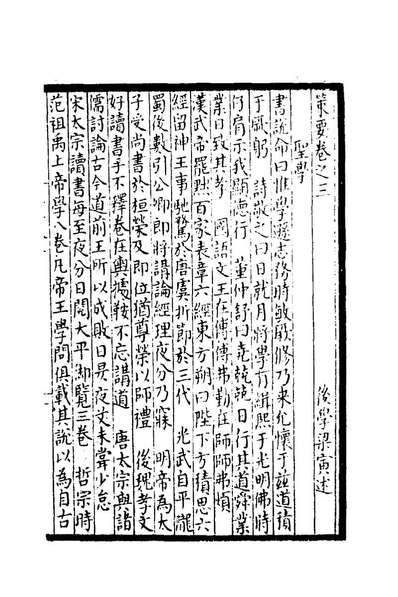 策要卷之三
後學梁寅述
聖學
書說命曰惟學遜志務時敏厥修乃來允懷于茲道積
于厥躬　詩敬之曰日就月將學有緝熙于光明佛時
仔肩示我顯德行　董仲舒曰堯兢兢日行其道舜業
業日致其孝　國語文王在傅傅弗勤在師師弗煩
漢武帝罷黜百家表章六經東方朔曰陛下方積思六
經留神王事馳騖於唐虞折節於三代　光武自平隴
蜀後數引公卿郎將講論經理夜分乃寐　明帝為太
子受尚書於桓榮及即位猶尊榮以師禮　後魏孝文
好讀書手不釋卷在輿據鞍不忘講道　唐太宗與諸
儒討論古今道前王所以成敗日昃夜艾未嘗少怠
宋太宗讀書每至夜分日閱太平御覽三卷　哲宗時
范祖禹上帝學八卷凡帝王學問俱載其說以為自古